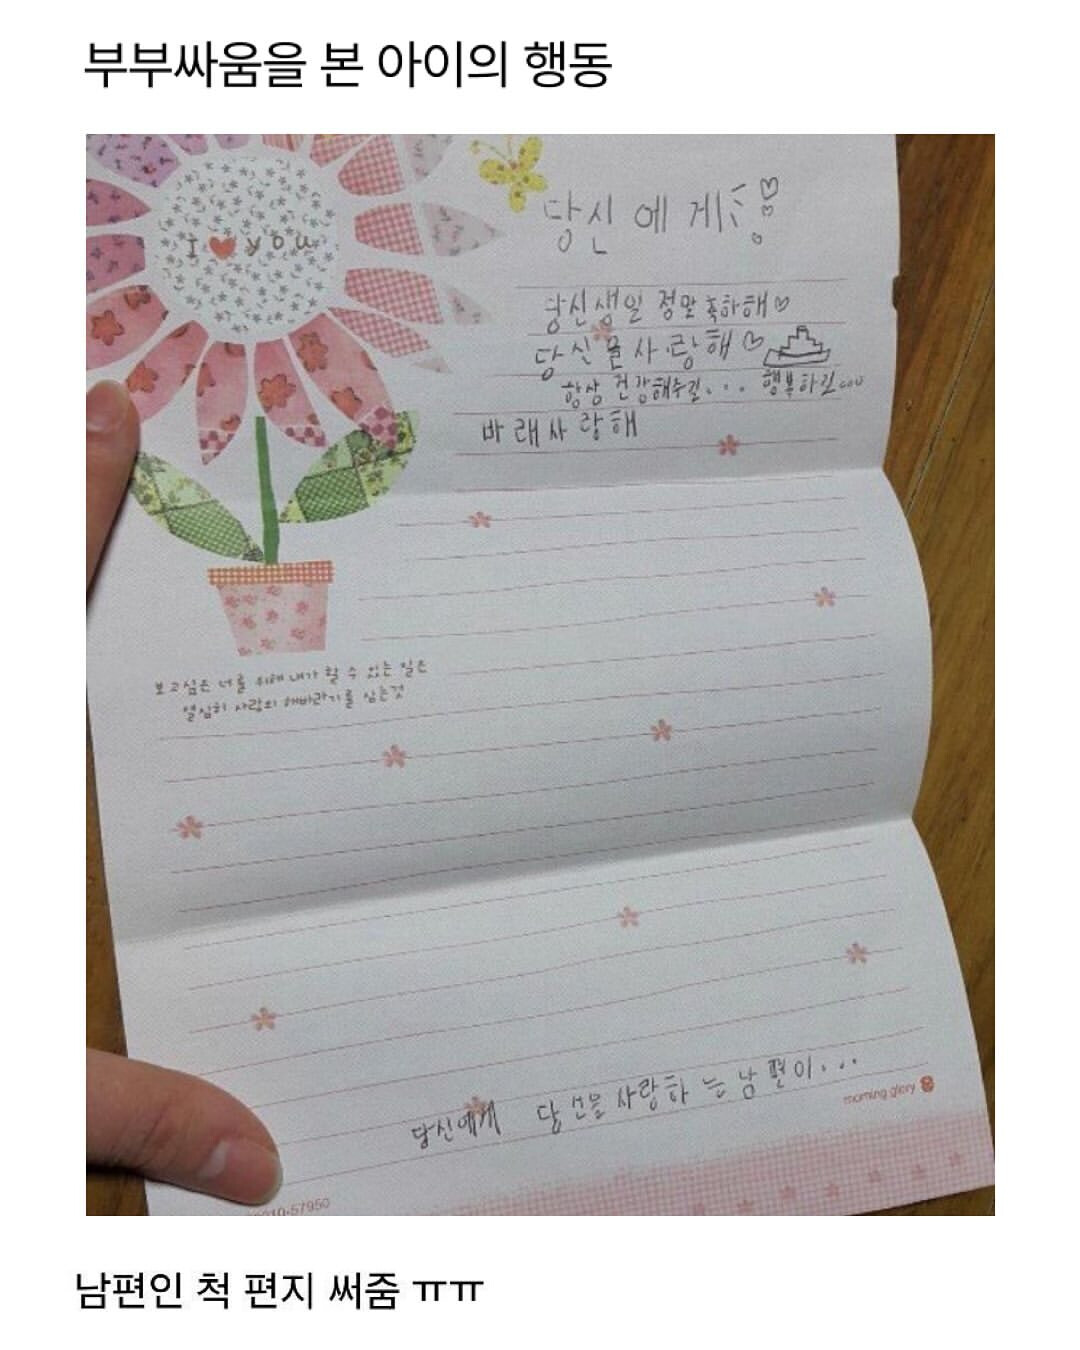 부부싸움을 본 아이의 행동
I ❤ you
당신에게
당신생일 정말 축하해♡
당신을사랑해♡
항상 건강해주길... 행복하길...
바래사랑해
보고싶은 너를 위해 내가 할 수 있는 일은
열심히 사랑의 해바라기를 심는것
당신에게 당신을사랑하는남편이...
morning glory
10-57950
남편인 척 편지 써줌 ㅠㅠ